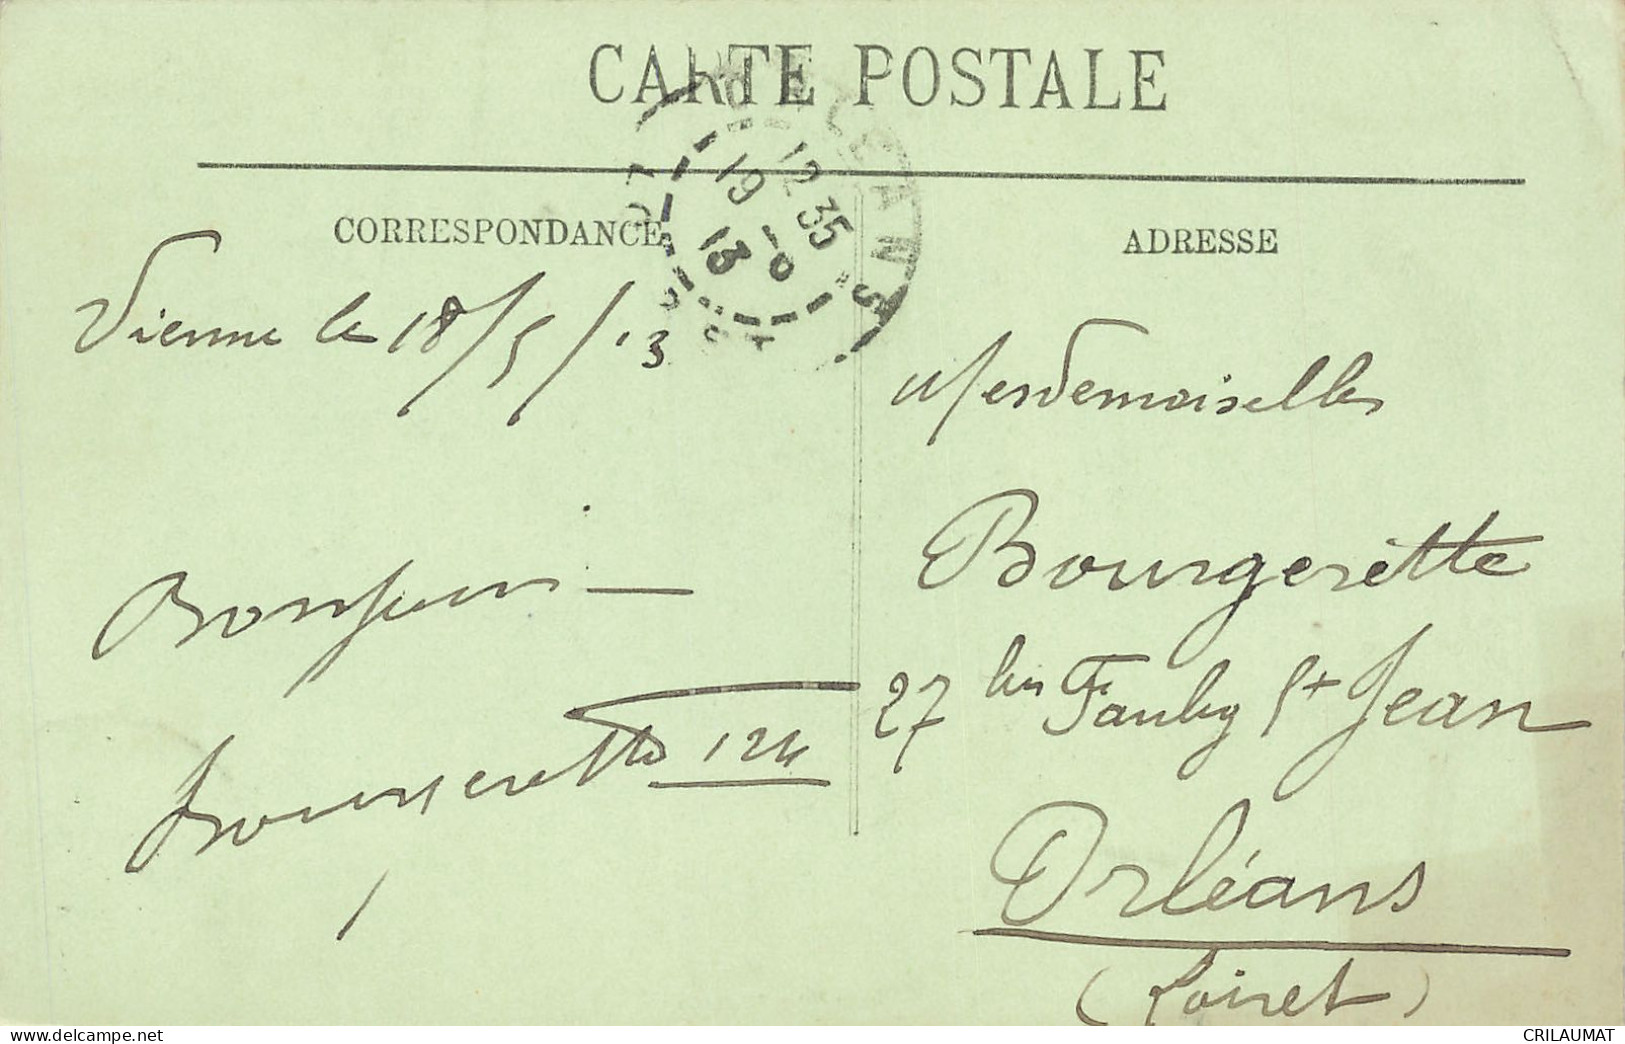 CARTE POSTALE
ORLEANS
12 35
19 - 5
13
CORRESPONDANCE
ADRESSE
Vienne le 18/5/13
Mesdemoiselles
Bonjour —
Bourgerette
27 bis Faubg St Jean
Bourgerette 124
Orléans
(Loiret)
www.delcampe.net
CRILAUMAT